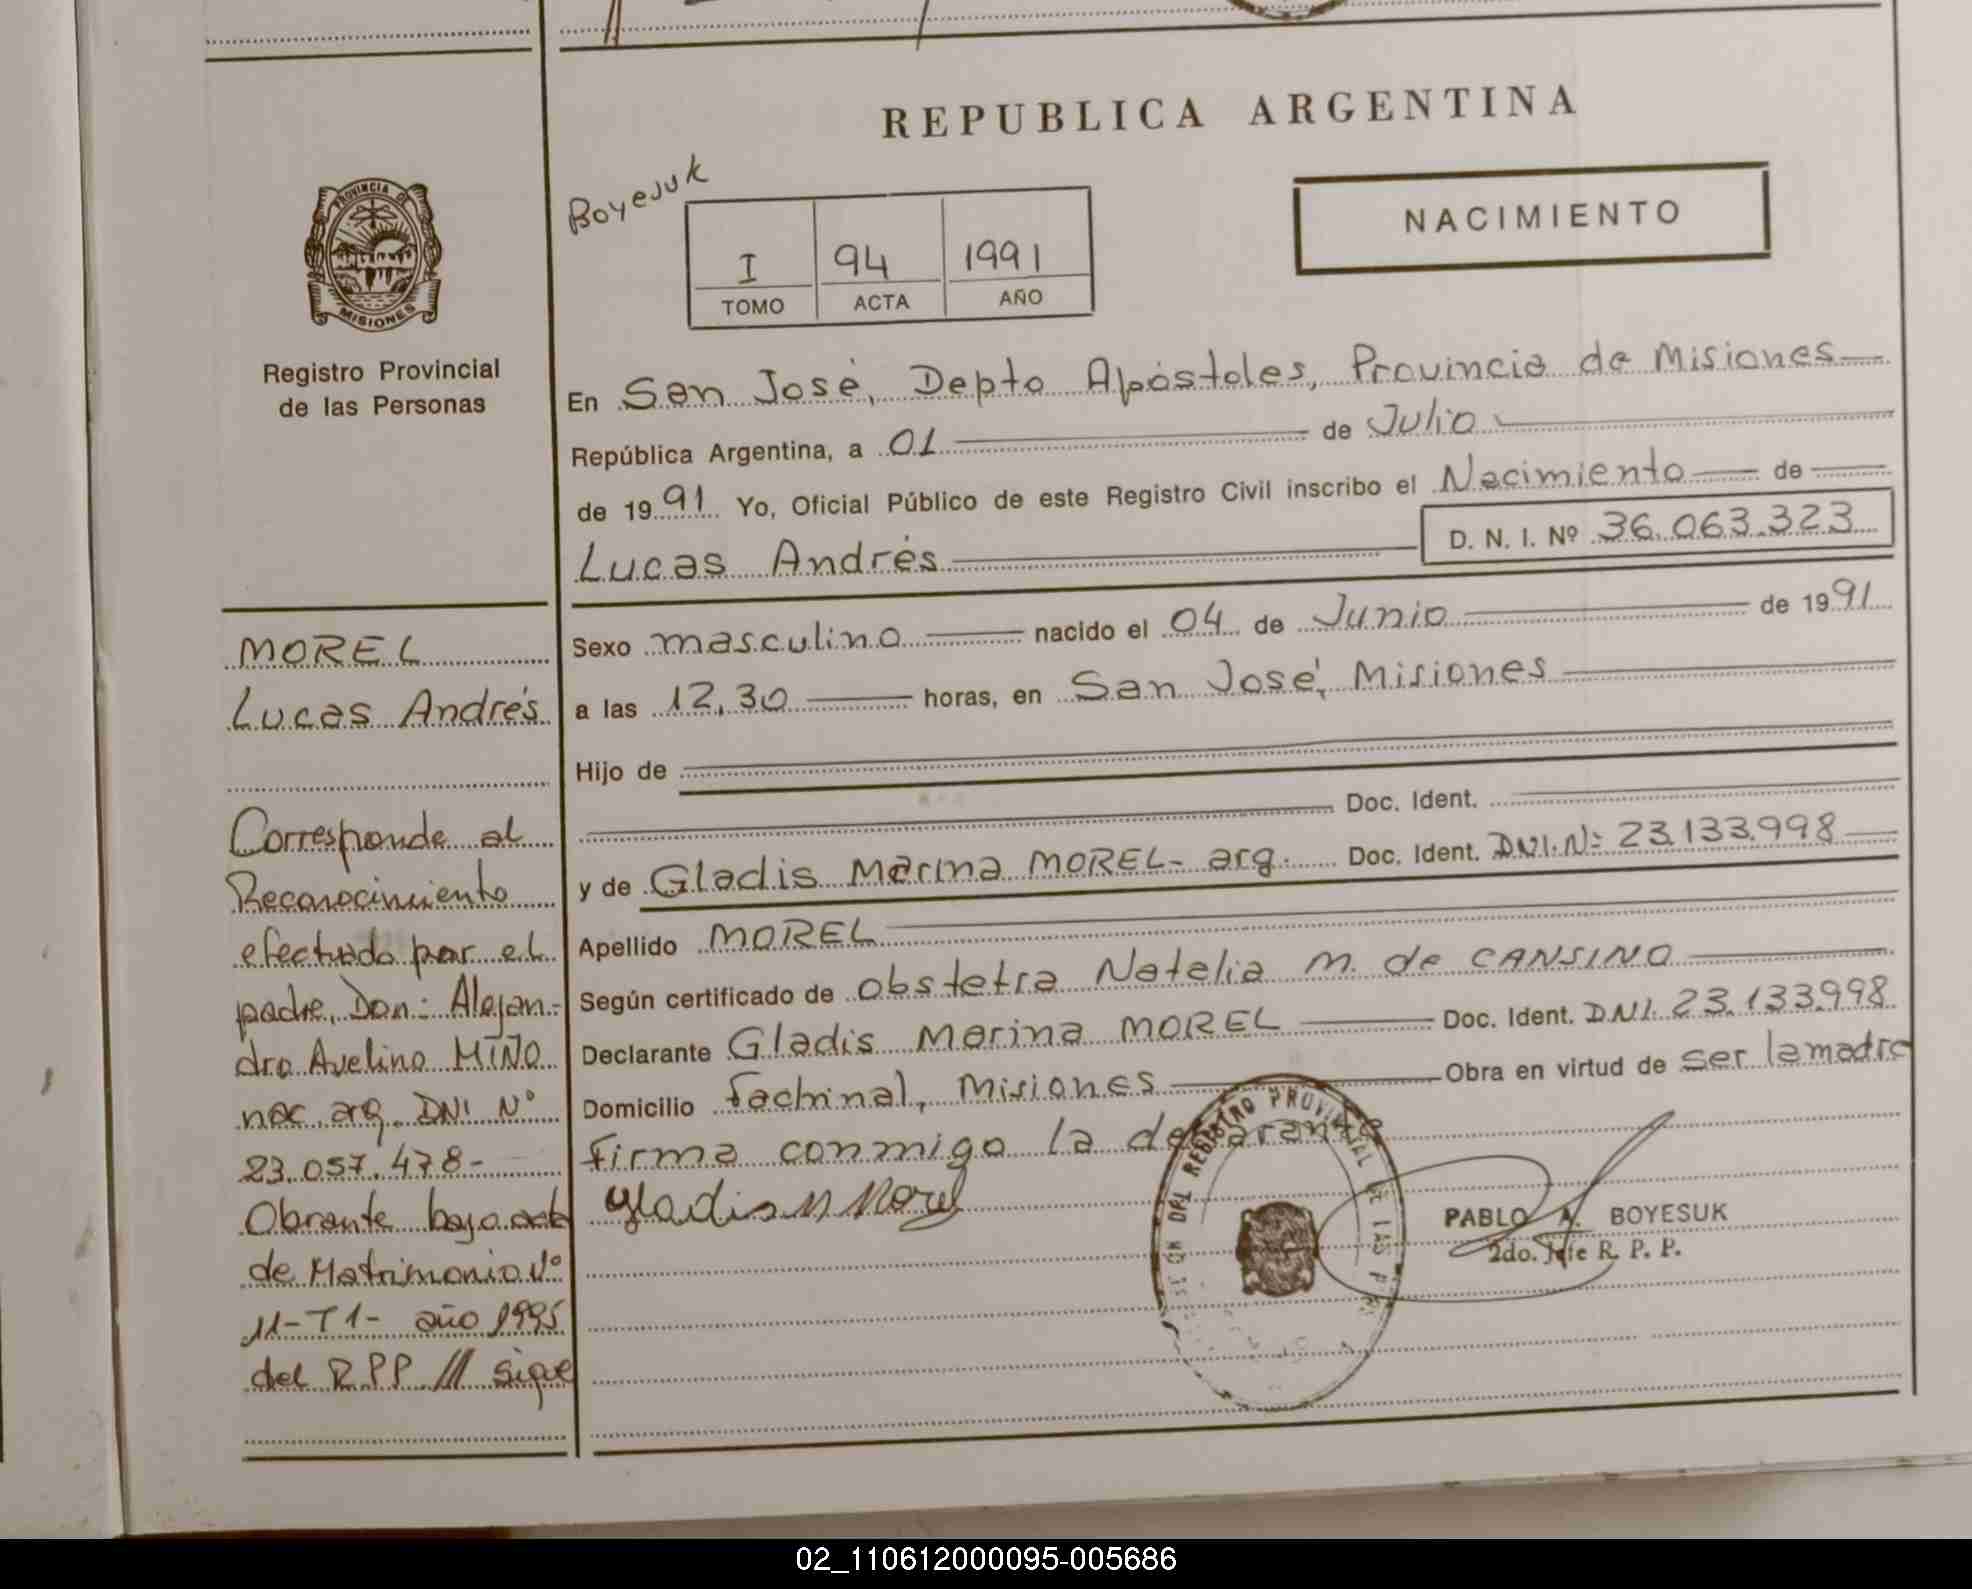 REPUBLICA ARGENTINA
Boyesuk
NACIMIENTO
I 94 1991
TOMO ACTA AÑO
PROVINCIA DE
MISIONES
Registro Provincial
de las Personas
En San José, Depto Apóstoles, Provincia de Misiones
República Argentina, a 01 de Julio
de 1991 Yo, Oficial Público de este Registro Civil inscribo el Nacimiento de
Lucas Andrés D. N. I. Nº 36.063.323
Sexo masculino nacido el 04 de Junio de 1991
a las 12,30 horas, en San José, Misiones
Hijo de
Doc. Ident.
y de Gladis Marina MOREL- arg. Doc. Ident. DNI. Nº 23.133.998
Apellido MOREL
Según certificado de obstetra Natalia M. de CANSINO
Declarante Gladis Marina MOREL Doc. Ident. DNI. 23.133.998
Domicilio Fachinal, Misiones Obra en virtud de ser la madre
Firma conmigo la declarante
Gladis M Morel
PABLO A. BOYESUK
2do. Jefe R. P. P.
REGISTRO PROVINCIAL DE LAS
MOREL
Lucas Andrés
Corresponde al
Reconocimiento
efectuado por el
padre, Don: Alejan-
dro Avelino MIÑO
nac. arg. DNI Nº
23.057.478-
Obrante bajo acta
de Matrimonio Nº
11-T1- año 1995
del RPP /// sigue
02_110612000095-005686